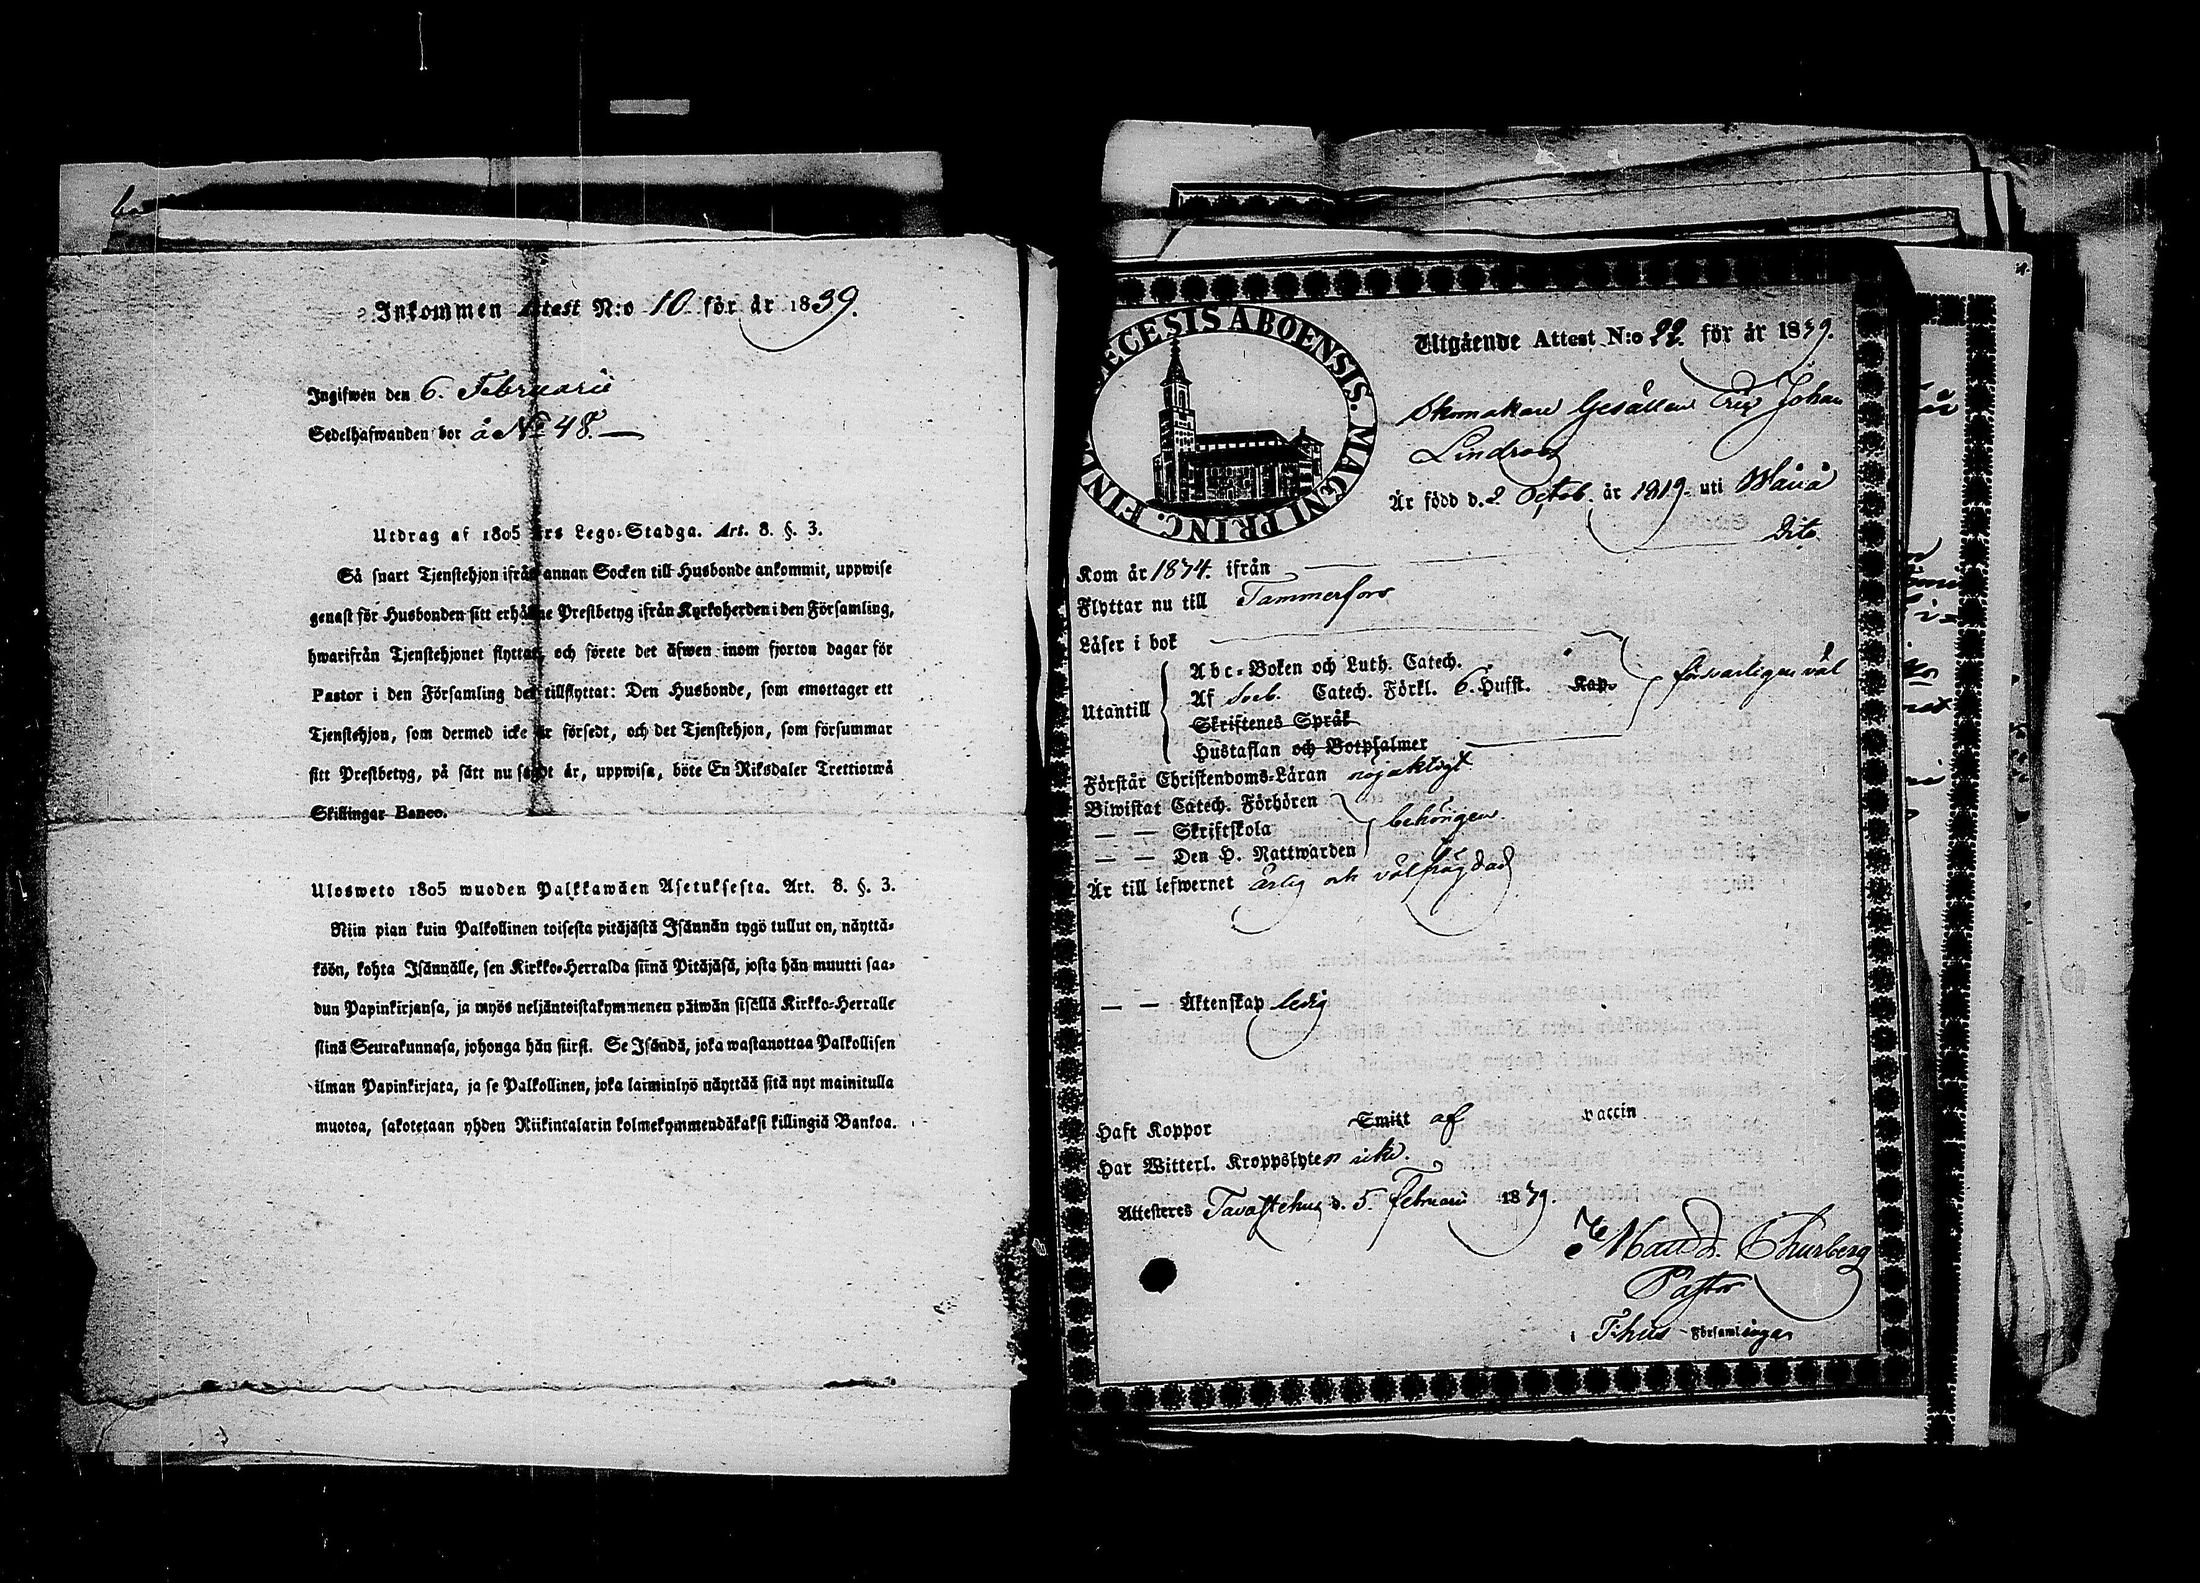 Inkommen Attest N:o 10 för år 1839.
Ingifwen den 6. Februarii
Sedelhafwanden bor å No 48.
Utdrag af 1805 års Lego-Stadga. Art. 8. §. 3.
Så snart Tjenstehjon ifrån annan Socken till Husbonde ankommit, uppwise
genast för Husbonden sitt erhållne Prestbetyg ifrån Kyrkoherden i den Församling,
hwarifrån Tjenstehjonet flyttat, och förete det äfwen inom fjorton dagar för
Pastor i den Församling det tillflyttat: Den Husbonde, som emottager ett
Tjenstehjon, som dermed icke är försedt, och det Tjenstehjon, som försummar
sitt Prestbetyg, på sätt nu sagdt är, uppwisa, böte En Riksdaler Trettiotwå
Skillingar Banco.
Ulosweto 1805 wuoden Palkkawäen Asetuksesta. Art. 8. §. 3.
Niin pian kuin Palkollinen toisesta pitäjästä Isännän tygö tullut on, näyttä-
köön, kohta Isännälle, sen Kirkko-Herralda siinä Pitäjäsä, josta hän muutti saa-
dun Papinkirjansa, ja myös neljäntoistakymmenen päiwän sisällä Kirkko-Herralle
siinä Seurakunnasa, johonga hän siirsi. Se Isändä, joka wastanottaa Palkollisen
ilman Papinkirjata, ja se Palkollinen, joka laiminlyö näyttää sitä nyt mainitulla
muotoa, sakotetaan yhden Riikintalarin kolmekymmendäkaksi killingiä Bankoa.
ECESIS ABOENSIS. MAGNI PRINC. FINL
Utgående Attest N:o 22. för år 1839.
Skomakare Gesällen Eric Johan
Lindroos
Är född d. 2 Octob. år 1819. uti
Dito
Kom år 1834. ifrån
Flyttar nu till Tammerfors
Läser i bok
Utantill
Abc-Boken och Luth. Catech.
Af Sveb. Catech. Förkl. 6. Hufst. Kap.
försvarligen väl
Skriftenes Språk
Hustaflan och Botpsalmer
Förstår Christendoms-Läran nöjaktigt
Biwistat Catech. Förhören
— — Skriftskola
behörigen.
— — Den H. Nattwarden
Är till lefwernet ärlig och välfrägdad
— — Äktenskap ledig
Haft Koppor Smitt af vaccin
Har Witterl. Kroppslyten icke.
Attesteres Tavastehus d. 5. Februarii 1839.
Thurberg
Pastor
i T:hus Församlingar